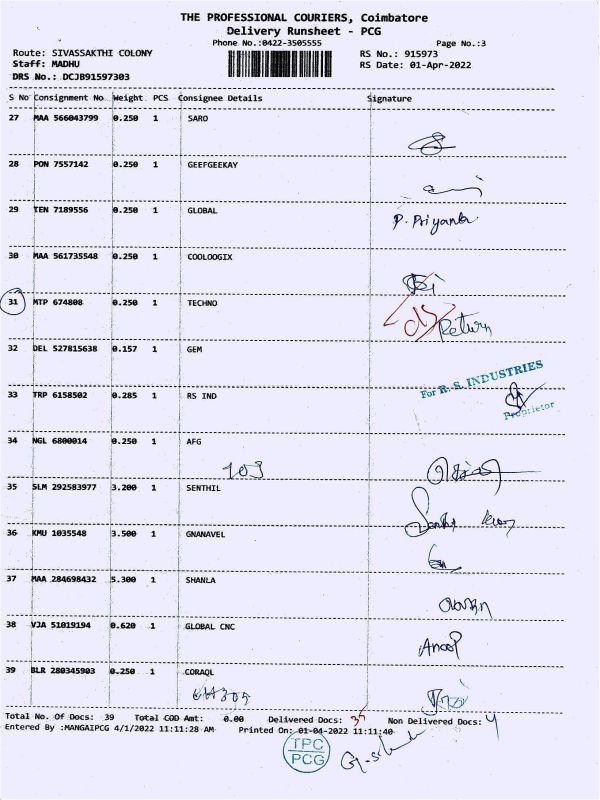 THE PROFESSIONAL COURIERS, Coimbatore
Delivery Runsheet - PCG
Phone No.:0422-3505555 Page No.:3
Route: SIVASSAKTHI COLONY RS No.: 915973
Staff: MADHU RS Date: 01-Apr-2022
DRS No.: DCJB91597303
S No Consignment No Weight PCS Consignee Details Signature
27 MAA 566043799 0.250 1 SARO
28 PON 7557142 0.250 1 GEEFGEEKAY
29 TEN 7189556 0.250 1 GLOBAL
P. Priyanka
30 MAA 561735548 0.250 1 COOLOGIX
31 MTP 674808 0.250 1 TECHNO
Return
32 DEL 527815638 0.157 1 GEM
For R. S. INDUSTRIES
33 TRP 6158502 0.285 1 RS IND
Proprietor
34 NGL 6800014 0.250 1 AFG
103
35 SLM 292583977 3.200 1 SENTHIL
36 KMU 1035548 3.500 1 GNANAVEL
37 MAA 284698432 5.300 1 SHANLA
38 VJA 51019194 0.620 1 GLOBAL CNC
Anoop
39 BLR 280345903 0.250 1 CORAQL
Total No. Of Docs: 39 Total COD Amt: 0.00 Delivered Docs: 35 Non Delivered Docs: 4
Entered By :MANGAIPCG 4/1/2022 11:11:28 AM Printed On: 01-04-2022 11:11:40
TPC
PCG